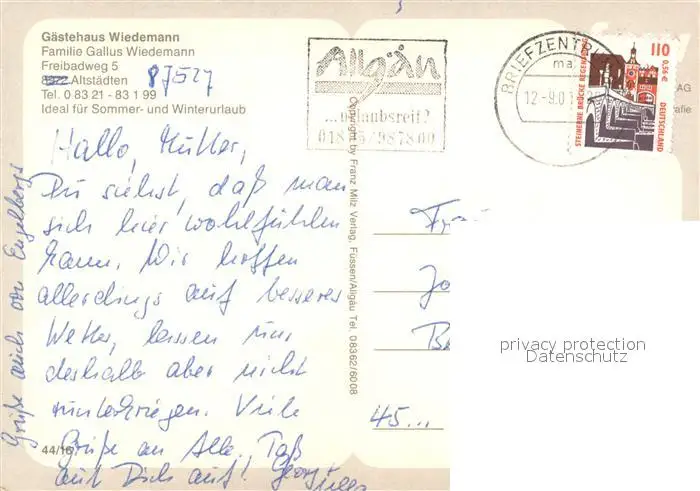 Gästehaus Wiedemann
Familie Gallus Wiedemann
Freibadweg 5
8972 Altstädten 87527
Tel. 0 83 21 - 83 1 99
Ideal für Sommer- und Winterurlaub
Allgäu
...urlaubsreif?
BRIEFZENTR
ma
12.-9.0
110
0,56 €
STEINERNE BRÜCKE REGENSBURG
DEUTSCHLAND
AG
grafie
Hallo, Mutter,
Du siehst, daß man
sich hier wohlfühlen
kann. Wir hoffen
allerdings auf besseres
Wetter, lassen uns
deshalb aber nicht
unterkriegen. Viele
Grüße an Alle. Paß
auf Dich auf! Georg
Grüße auch von Engelbergs
44/16
Copyright by Franz Milz Verlag, Füssen/Allgäu Tel. 08362/6008
Fra
Jo
Ba
45...
privacy protection
Datenschutz